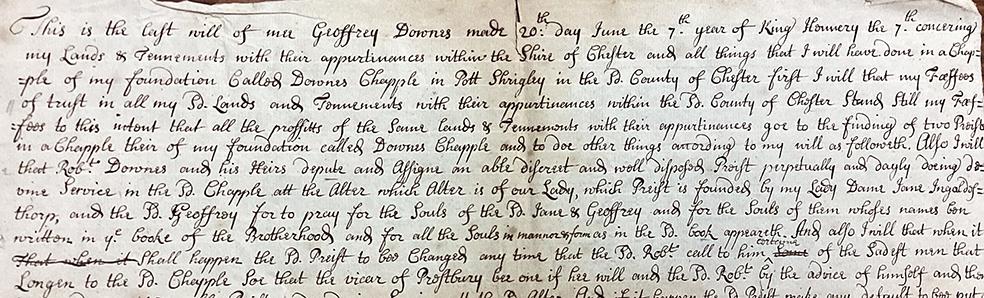 This is the last will of mee Geoffrey Downes made 20:th day June the 7.th year of King Hennery the 7.th concering
my Lands & Tennements with their appurtinances within the Shire of Chester and all things that I will have done in a Chap=
=ple of my foundation Called Downes Chapple in Pott Shrigley in the Pd. County of Chester first I will that my Fœffees
of trust in all my Pd. Lands and Tennements with their appurtinances within the Pd. County of Chester Stand Still my Fœf=
=fees to this intent that all the proffitts of the Same lands & Tennements with their appurtinances goe to the finding of two Preists
in a Chapple their of my foundation called Downes Chapple and to doe other things according to my will as followeth. Allso I will
that Robt. Downes and his Heirs depute and Assigne an able discreet and well disposed Preist perpetually and dayly doeing de=
vine Service in the Pd. Chapple att the Alter which Alter is of our Lady, which Preist is founded by my Lady Dame Jane Ingaldes=
thorp, and the Pd. Geoffrey for to pray for the Souls of the Pd. Jane & Geoffrey and for the Souls of them whoses names ben
written in ye. booke of the Brotherhood and for all the Souls in manner & form as in the Pd. book appeareth. And also I will that when it
That when it Shall happen the Pd. Preist to bee Changed any time that the Pd. Robt. call to him certeyne of the Sadest men that
Longen to the Pd. Chapple Soe that the vicar of Prestbury bee one if hee will and the Pd. Robt. by the advice of himself and